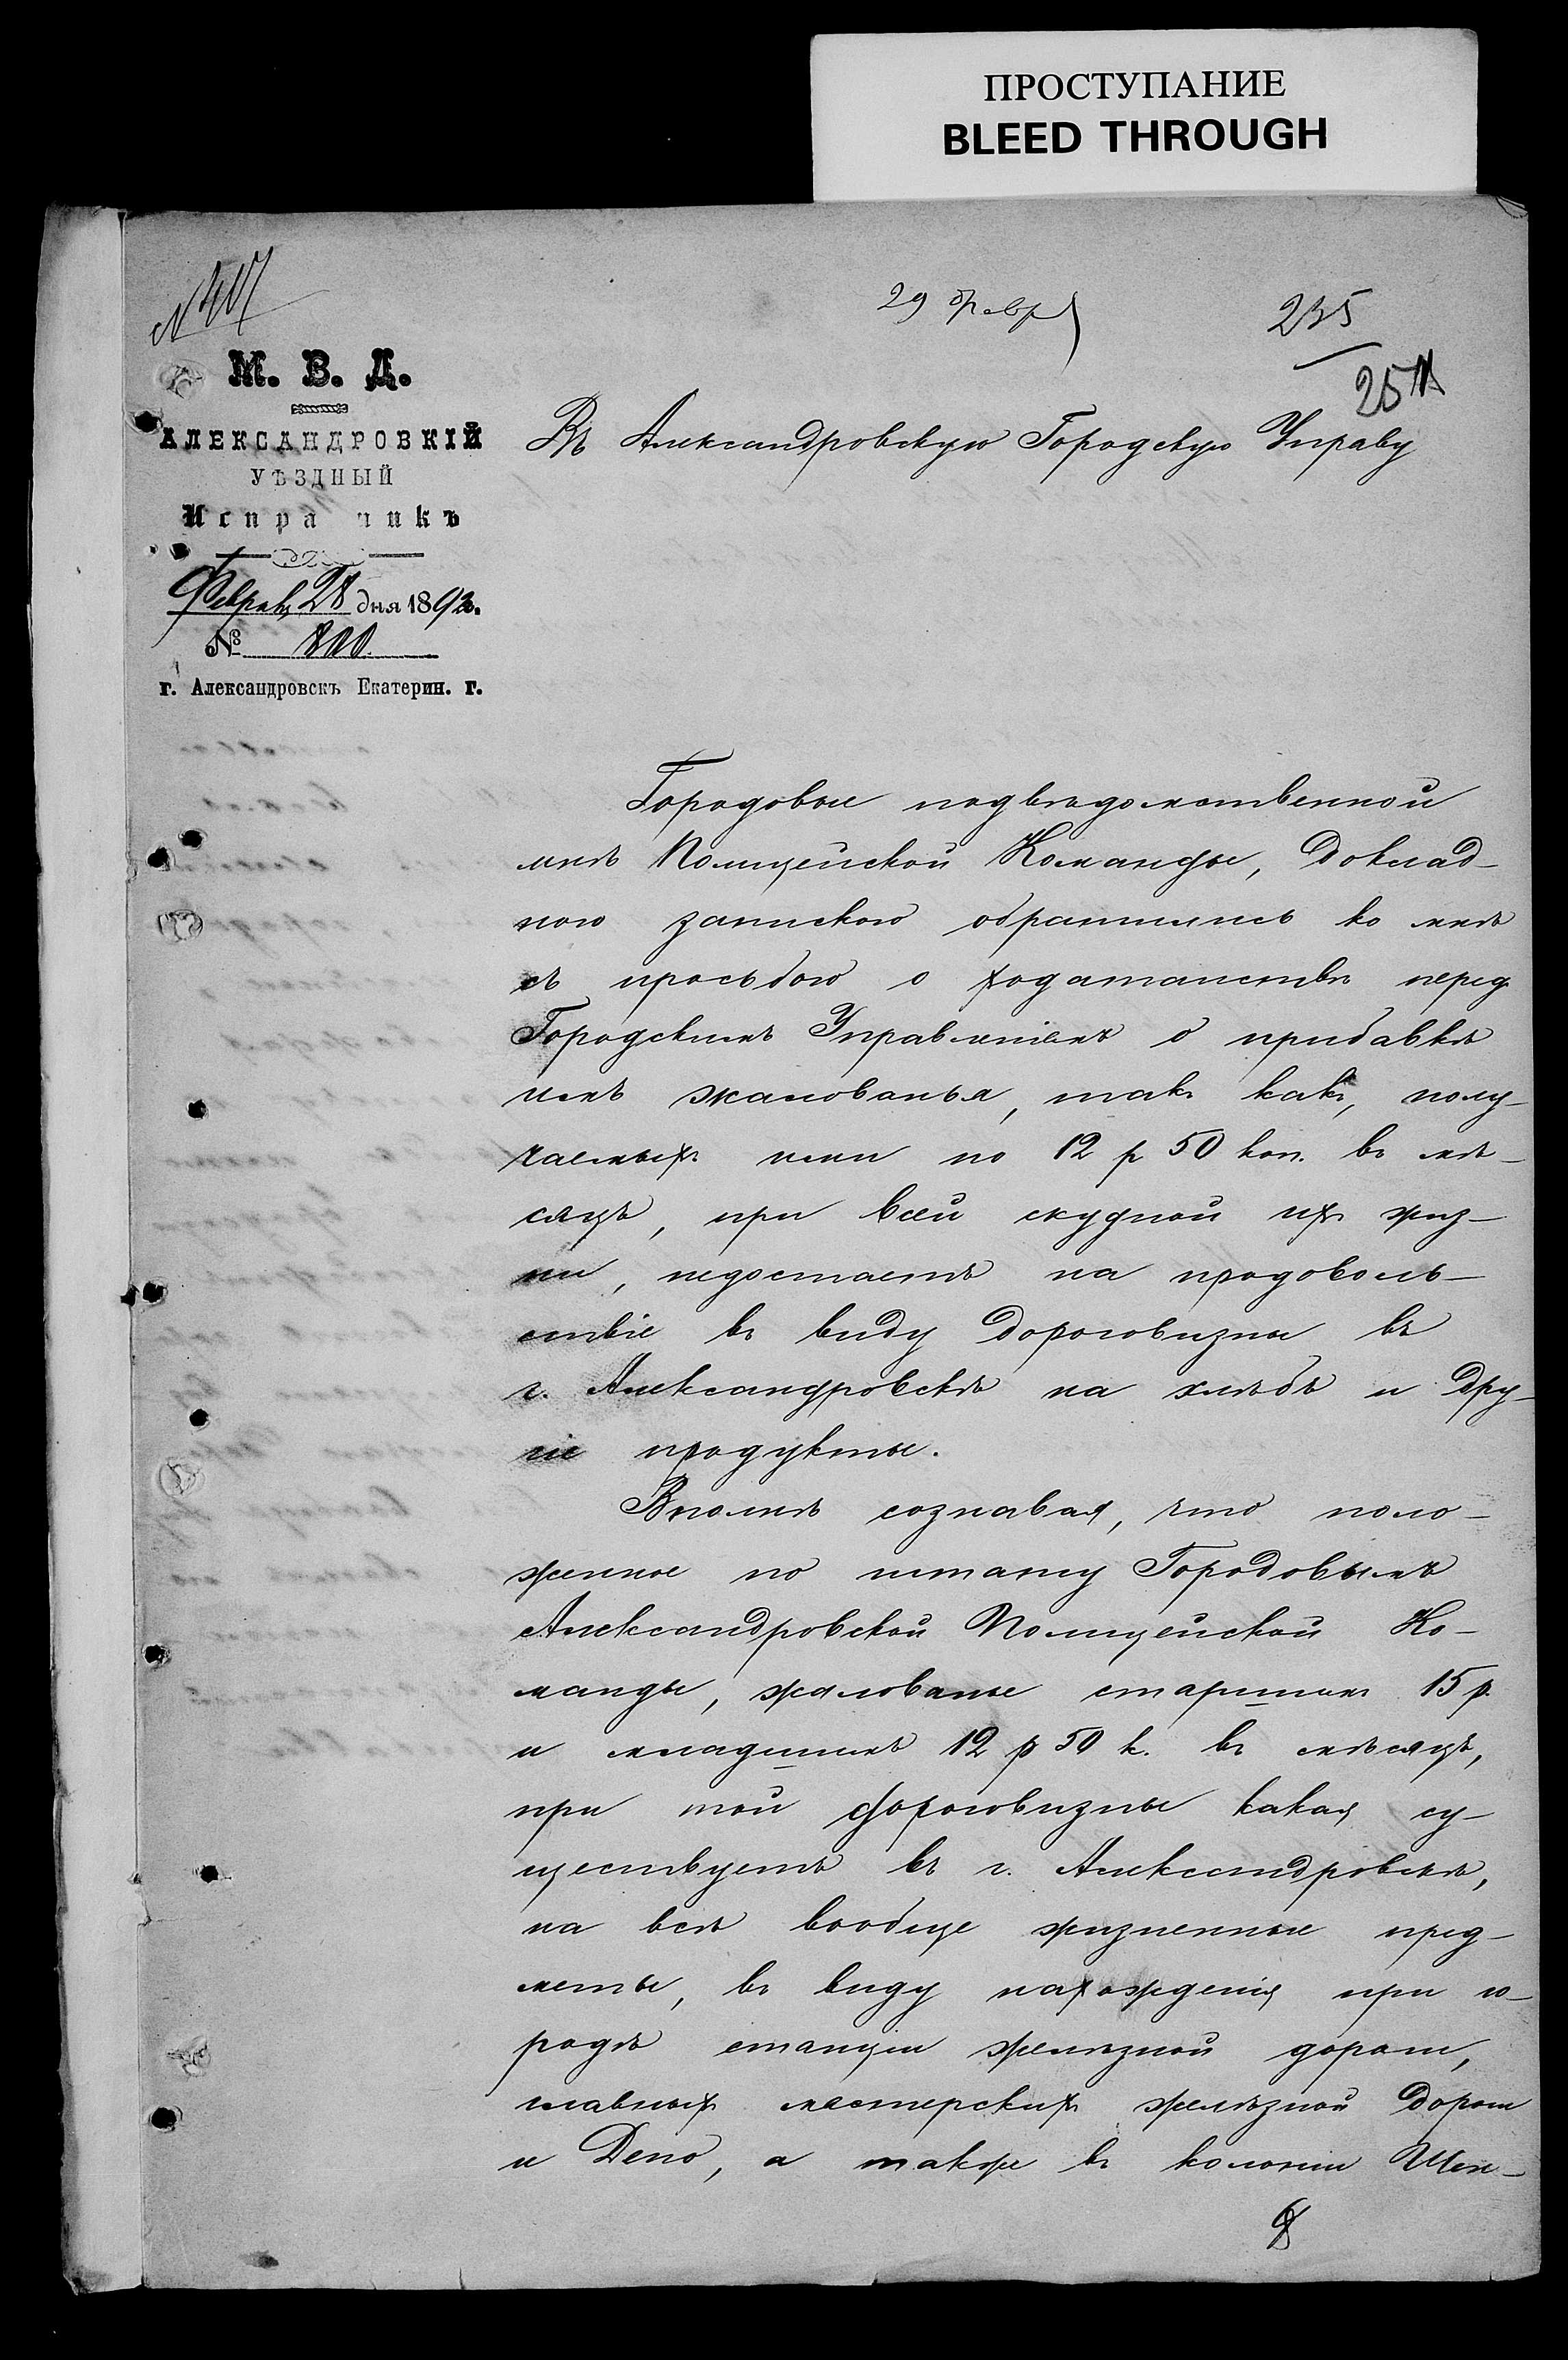 ПРОСТУПАНИЕ
BLEED THROUGH
29 февр
235
251
М. В. Д.
АЛЕКСАНДРОВКІЙ
УѢЗДНЫЙ
Испра никъ
Февраля 28 дня 1892.
№ 800
г. Александровскъ Екатерин. г.
Въ Александровскую Городскую Управу
Городовые подвѣдомственной
мнѣ Полицейской Команды, доклад-
ною запискою обратились ко мнѣ
съ просьбою о ходатайствѣ перед
Городскимъ Управленіемъ о прибавкѣ
имъ жалованья, такъ какъ, полу-
чаемыхъ ими по 12 р 50 коп. въ мѣ-
сяцъ, при всей скудной ихъ жиз-
ни, недостаетъ на продоволь-
ствіе въ виду дороговизны въ
г. Александровскѣ на хлѣбъ и дру-
гіе продукты.
Вполнѣ сознавая, что поло-
женное по штату Городовымъ
Александровской Полицейской Ко-
манды, жалованье старшимъ 15 р.
и младшимъ 12 р 50 к. въ мѣсяцъ,
при той дороговизны какая су-
ществуетъ въ г. Александровскѣ,
на всѣ вообще жизненные пред-
меты, въ виду нахожденія при го-
родѣ станціи желѣзной дороги,
главныхъ мастерскихъ желѣзной дороги
и Депо, а также въ колоніи Шен-